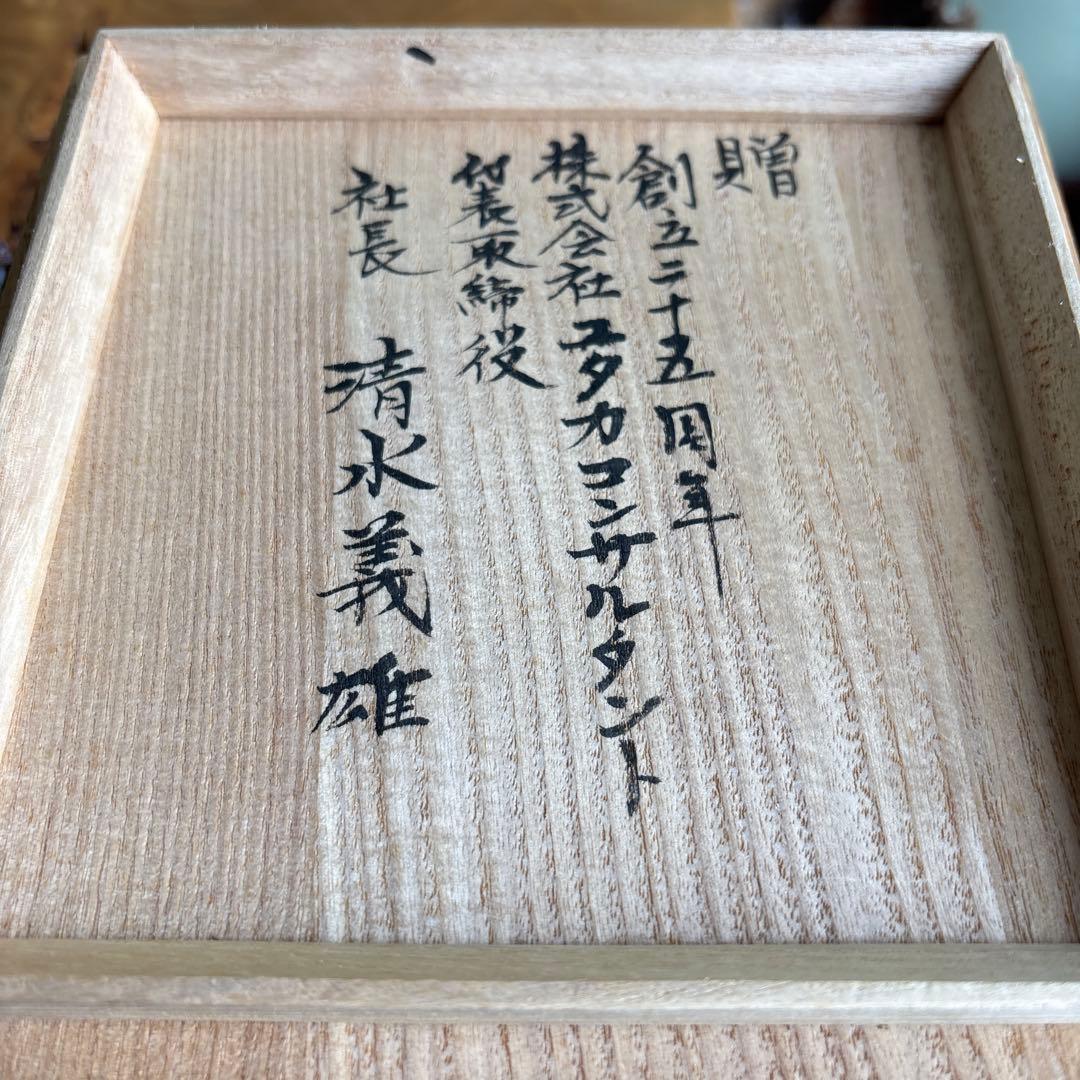 贈
創立二十五周年
株式会社ユタカコンサルタント
代表取締役
社長 清水義雄